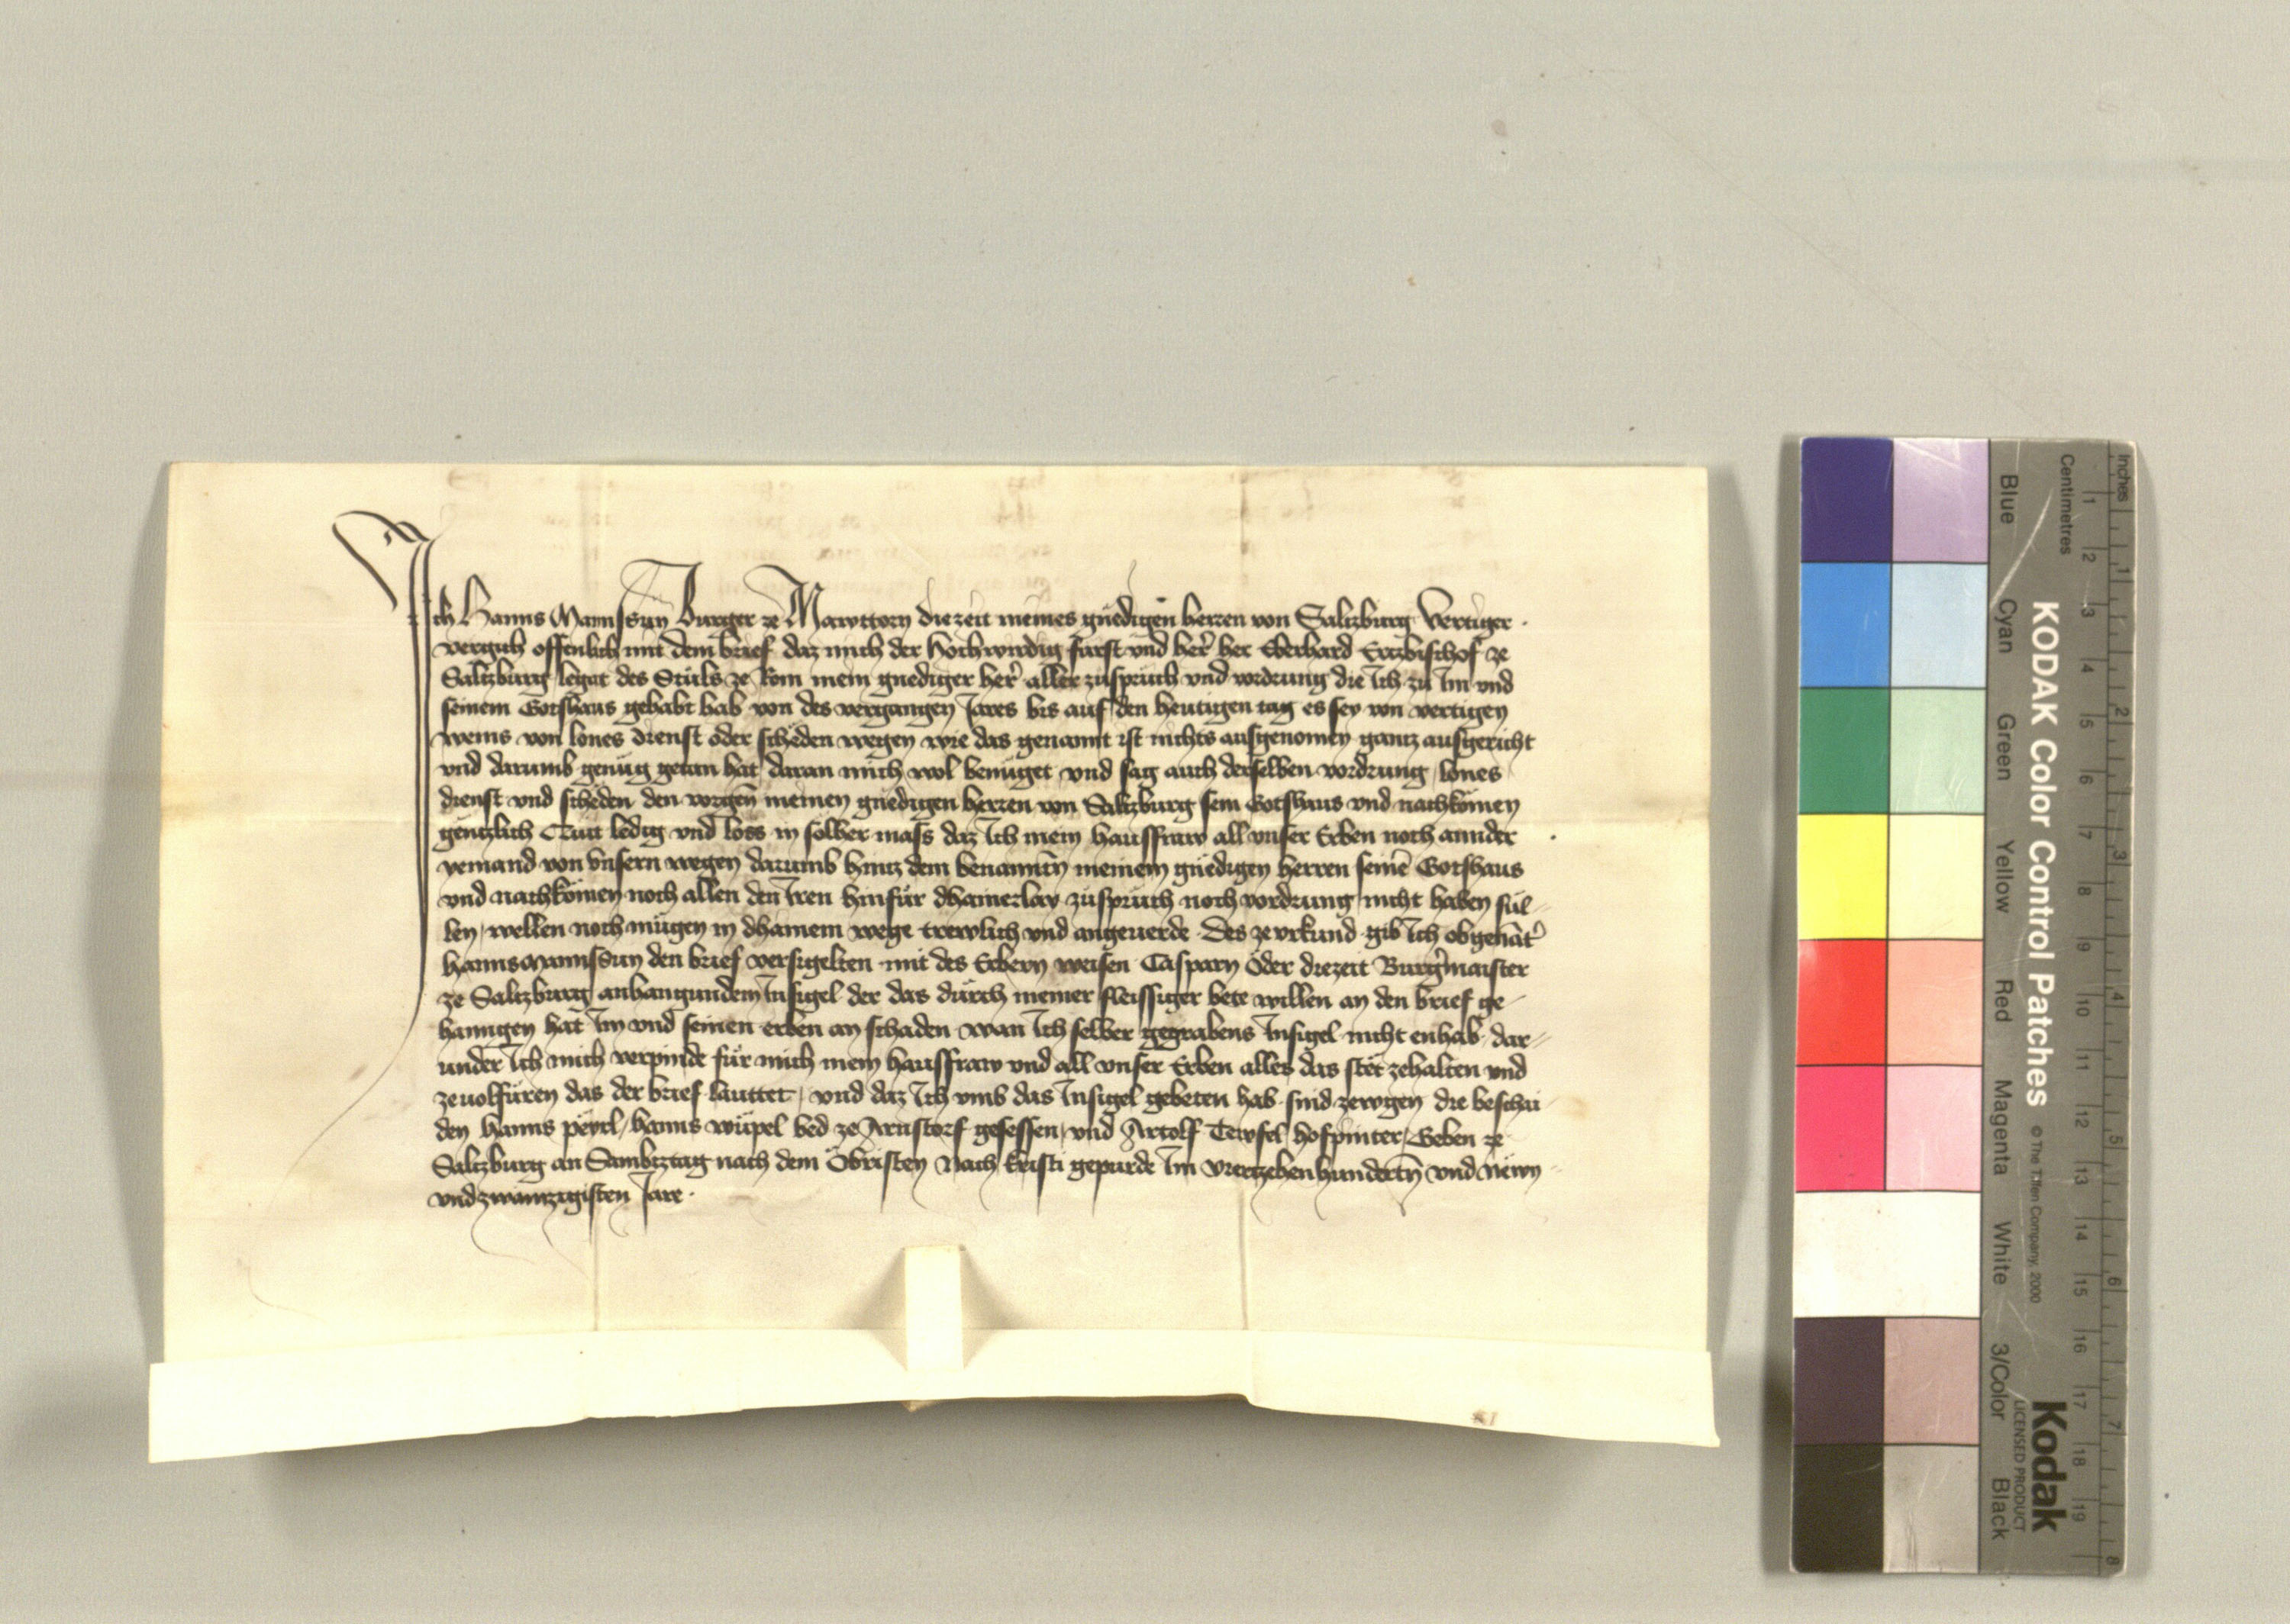 Ich Hanns Mannssun Burger ze Mawttorn diezeit meines gnedigen herren von Saltzburg Vertiger ·
vergich offenlich mit dem brief daz mich der Hochwirdig fürst vnd her her Eberhard Ertzbischof ze
Saltzburg legat des Stůls ze Rom mein gnediger her aller zuspruch vnd vordrung die Ich zu Im vnd
seinem Gotshaus gehabt hab von des vergangen Jares bis auf den heutigen tag es sey von vertigen
weins von lones dienst oder scheden wegen wie das genannt ist nichts ausgenomen gantz ausgericht
vnd darumb genůg getan hat daran mich wol benüget vnd sag auch derselben vordrung lones
dienst vnd scheden den vorgen meinen gnedigen herren von Saltzburg sein Gotshaus vnd nachkomen
gentzlich Quit ledig vnd loss in solher mass daz Ich mein hausfraw all vnser Erben noch annder
yemand von vnsern wegen darumb hintz dem benannten meinem gnedigen herren seinē Gotshaus
vnd nachkömen noch allen den Iren hinfür dhainerlay zůspruch noch vordrung nicht haben sül-
len wellen noch mügen in dhainem wege trewlich vnd angeuerde Des ze vrkund gib Ich obgenāt
Hanns Mannssun den brief versigelten mit des Erbern weisen Casparn Öder diezeit Burgmaister
ze Saltzburg anhangundem Insigel der das durch meiner fleissiger bete willen an den brief ge-
hanngen hat Im vnd seinen erben an schaden wan Ich selber gegrabens Insigel nicht enhab dar-
under Ich mich verpinde für mich mein hausfraw vnd all vnser Erben alles das stet zehalten vnd
zeuolfüren das der brief lauttet, vnd daz Ich vmb das Insigel gebeten hab sind zewgen die beschai
den Hanns peyrl, hanns wüpel bed ze Arnstorf gesessen, vnd Artolf Tewfel hofpinter, Geben ze
Saltzburg an Sambztag nach dem Obristen Nach kristi gepurde Im viertzehenhundertn vnd Newn
vndzwaintzigisten Jare ·
Inches
Centimetres
1 2 3 4 5 6 7 8 9 10 11 12 13 14 15 16 17 18 19
1 2 3 4 5 6 7 8
KODAK Color Control Patches © The Tiffen Company, 2000
Kodak
LICENSED PRODUCT
Blue Cyan Green Yellow Red Magenta White 3/Color Black